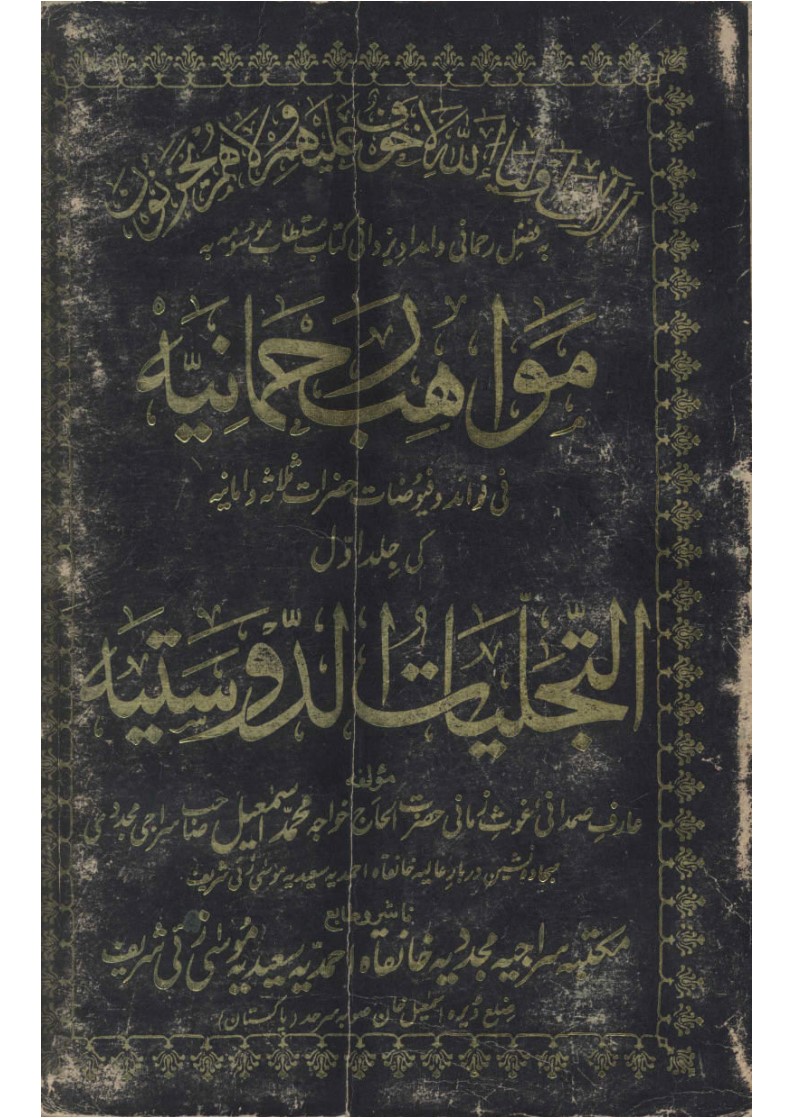 اَلَا اِنَّ اَوْلِيَاءَ اللهِ لَا خَوْفٌ عَلَيْهِمْ وَلَا هُمْ يَحْزَنُوْنَ
بہ فضلِ رحمانی و امدادِ یزدانی کتاب مستطاب موسومہ بہ
مَوَاهِبِ رَحمانِیَّہ
فی فوائد و فیوضات حضرات ثلاثہ دامانیہ
کی جلد اوّل
التَّجَلِّیَاتُ الدَّوْسَتِیَہ
مؤلفہ
عارفِ صمدانی غوثِ زمانی حضرت الحاج خواجہ محمد اسمٰعیل صاحب سراجی مجددی
سجادہ نشین دربارِ عالیہ خانقاہ احمدیہ سعیدیہ موسیٰ زئی شریف
ناشر و طابع
مکتبہ سراجیہ مجددیہ خانقاہ احمدیہ سعیدیہ موسیٰ زئی شریف
ضلع ڈیرہ اسمٰعیل خان صوبہ سرحد (پاکستان)